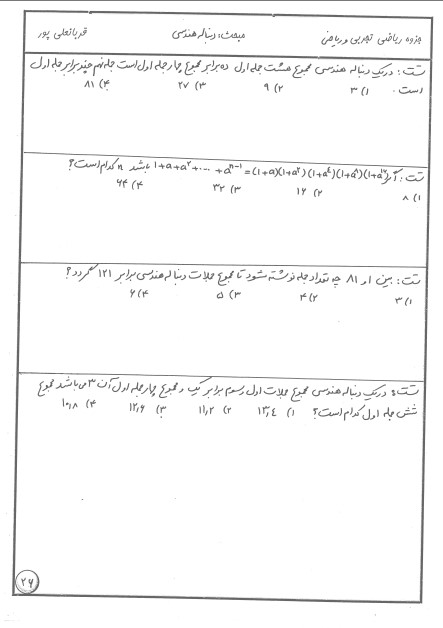 جزوه ریاضی تجربی و ریاضی
مبحث: دنباله هندسی
قربانعلی پور
تست: در یک دنباله هندسی مجموع هشت جمله اول ده برابر مجموع چهار جمله اول است جمله نهم چند برابر جمله اول
است. ۱) ۳ ۲) ۹ ۳) ۲۷ ۴) ۸۱
تست: اگر 1+a+a²+...+aⁿ⁻¹ = (1+a)(1+a²)(1+a⁴)(1+a⁸)(1+a¹⁶) باشد n کدام است؟
۱) ۸ ۲) ۱۶ ۳) ۳۲ ۴) ۶۴
تست: بین ۱ و ۸۱ چه تعداد جمله نوشته شود تا مجموع جملات دنباله هندسی برابر ۱۲۱ گردد؟
۱) ۳ ۲) ۴ ۳) ۵ ۴) ۶
تست: در یک دنباله هندسی مجموع جملات اول و سوم برابر یک و مجموع چهار جمله اول آن ۳ می باشد مجموع
شش جمله اول کدام است؟ ۱) ۱۳٫۴ ۲) ۱۱٫۲ ۳) ۱۲٫۶ ۴) ۱۰٫۸
۲۶